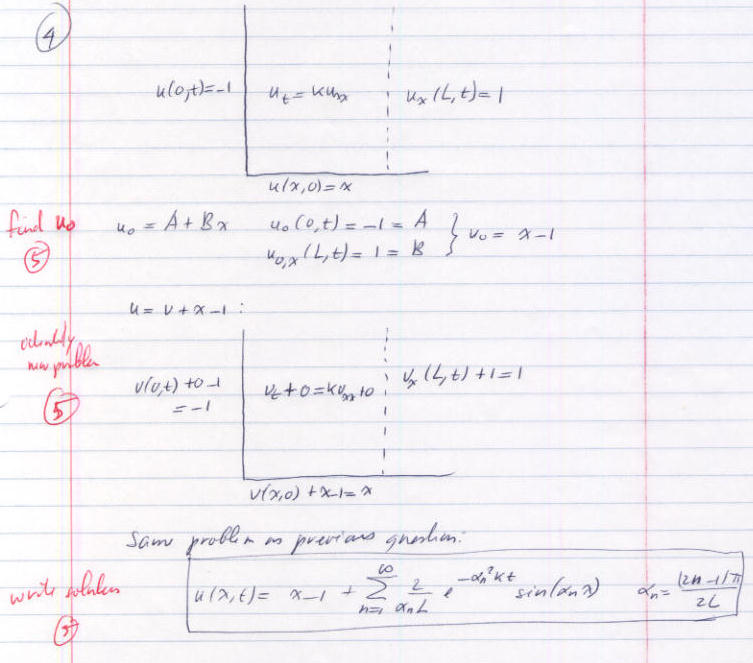 4
u(0,t)=-1
u_t = κu_xx
u_x(L,t)=1
u(x,0)=x
find u_0
5
u_0 = A+Bx   u_0(0,t)=-1=A
u_{0,x}(L,t)=1=B } v_0 = x-1
u = v+x-1 :
identify
new problem
5
v(0,t)+0-1
=-1
v_t+0=κv_xx+0
v_x(L,t)+1=1
v(x,0)+x-1=x
Same problem as previous question:
write solution
5
u(x,t)= x-1 + \sum_{n=1}^{∞} \frac{2}{α_n L} e^{-α_n^2 κt} sin(α_n x)   α_n = \frac{(2n-1)π}{2L}